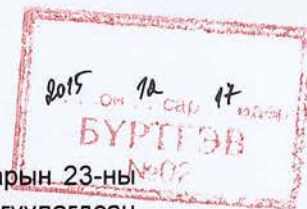 2015 он 12 сар 17 өдөр
БҮРТГЭВ
№02
арын 23-ны